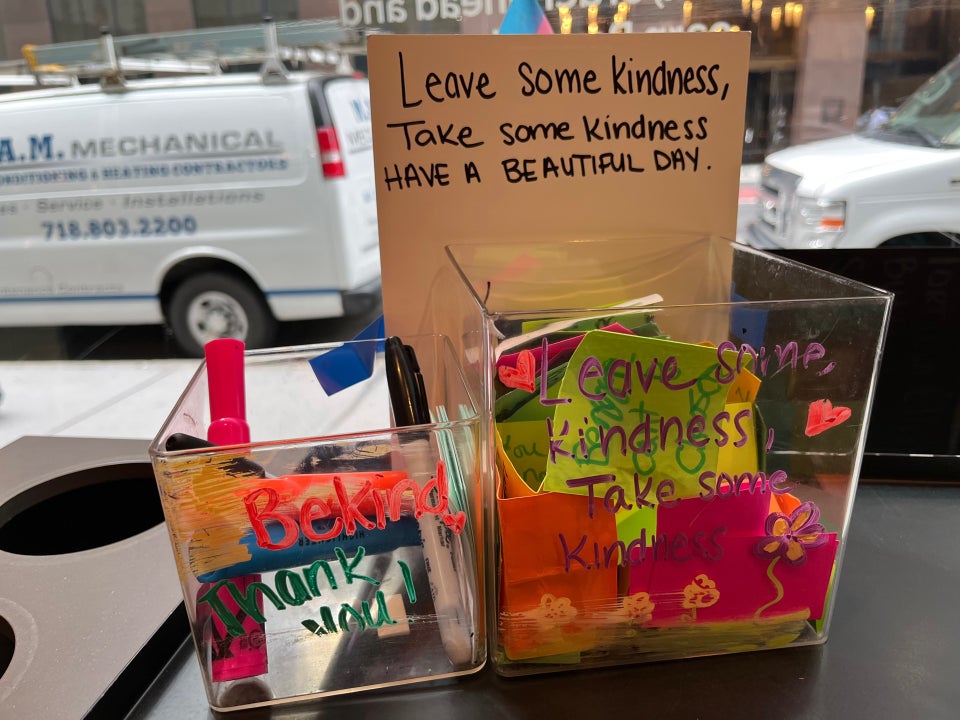 Leave Some Kindness,
Take some Kindness
HAVE A BEAUTIFUL DAY.
A.M. MECHANICAL
CONDITIONING & HEATING CONTRACTORS
Service - Installations
718.803.2200
Leave Some,
Kindness,
Take some
Kindness
Be Kind,
Thank
you!